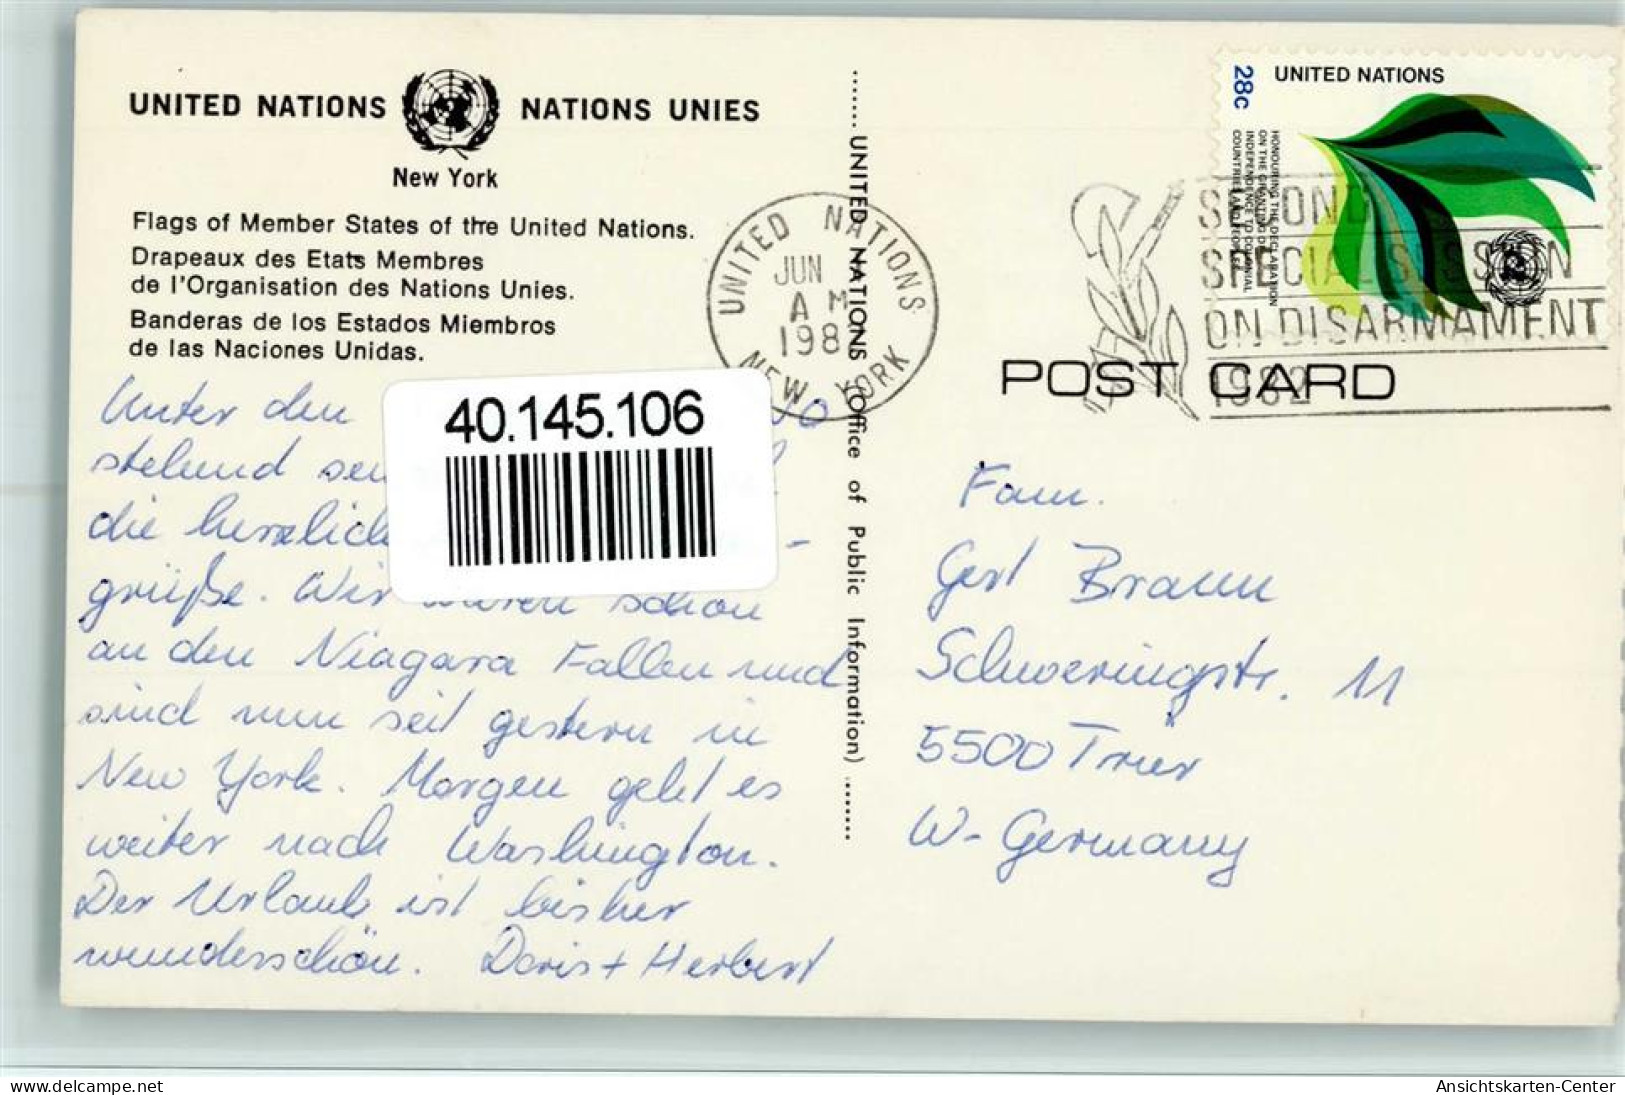 UNITED NATIONS NATIONS UNIES
New York
Flags of Member States of the United Nations.
Drapeaux des Etats Membres
de l'Organisation des Nations Unies.
Banderas de los Estados Miembros
de las Naciones Unidas.
Unter den
stehend sen
die herzlich
grüße. Wir waren schon
an den Niagara Fallen und
sind nun seit gestern in
New York. Morgen geht es
weiter nach Washington.
Der Urlaub ist bisher
wunderschön. Doris + Herbert
40.145.106
UNITED NATIONS (Office of Public Information)
UNITED NATIONS
JUN
AM
198
NEW YORK
28c UNITED NATIONS
HONOURING THE DECLARATION
ON THE GRANTING OF
INDEPENDENCE TO COLONIAL
COUNTRIES AND PEOPLES
SECOND
SPECIAL SESSION
ON DISARMAMENT
1982
POST CARD
Fam.
Gert Braun
Schweringstr. 11
5500 Trier
W-Germany
delcampe.net
Ansichtskarten-Center